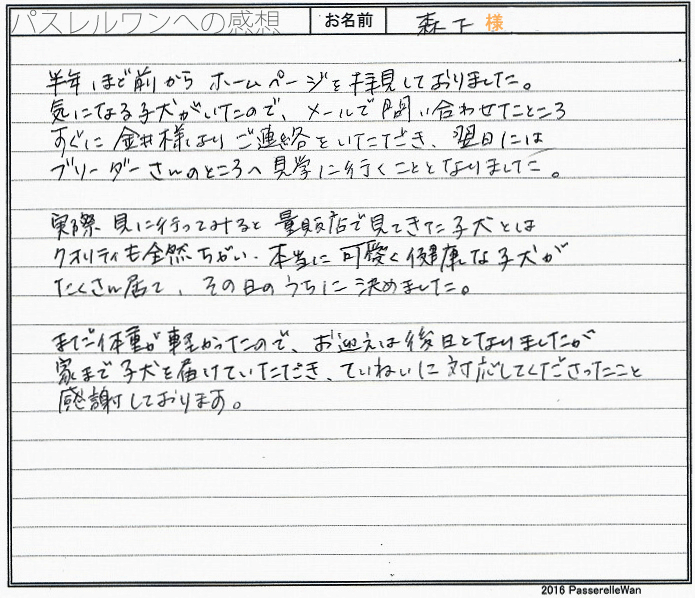 パスレルワンへの感想 お名前 森下 様
半年ほど前から ホームページを拝見しておりました。
気になる子犬がいたので、メールで問い合わせたところ
すぐに金井様より ご連絡をいただき、翌日には
ブリーダーさんのところへ見学に行くこととなりました。
実際 見に行ってみると 量販店で見てきた子犬とは
クオリティも全然ちがい、本当に可愛く健康な子犬が
たくさん居て、その日のうちに決めました。
まだ体重が軽かったので、お迎えは後日となりましたが
家まで子犬を届けていただき、ていねいに対応してくださったこと
感謝しております。
2016 PasserelleWan